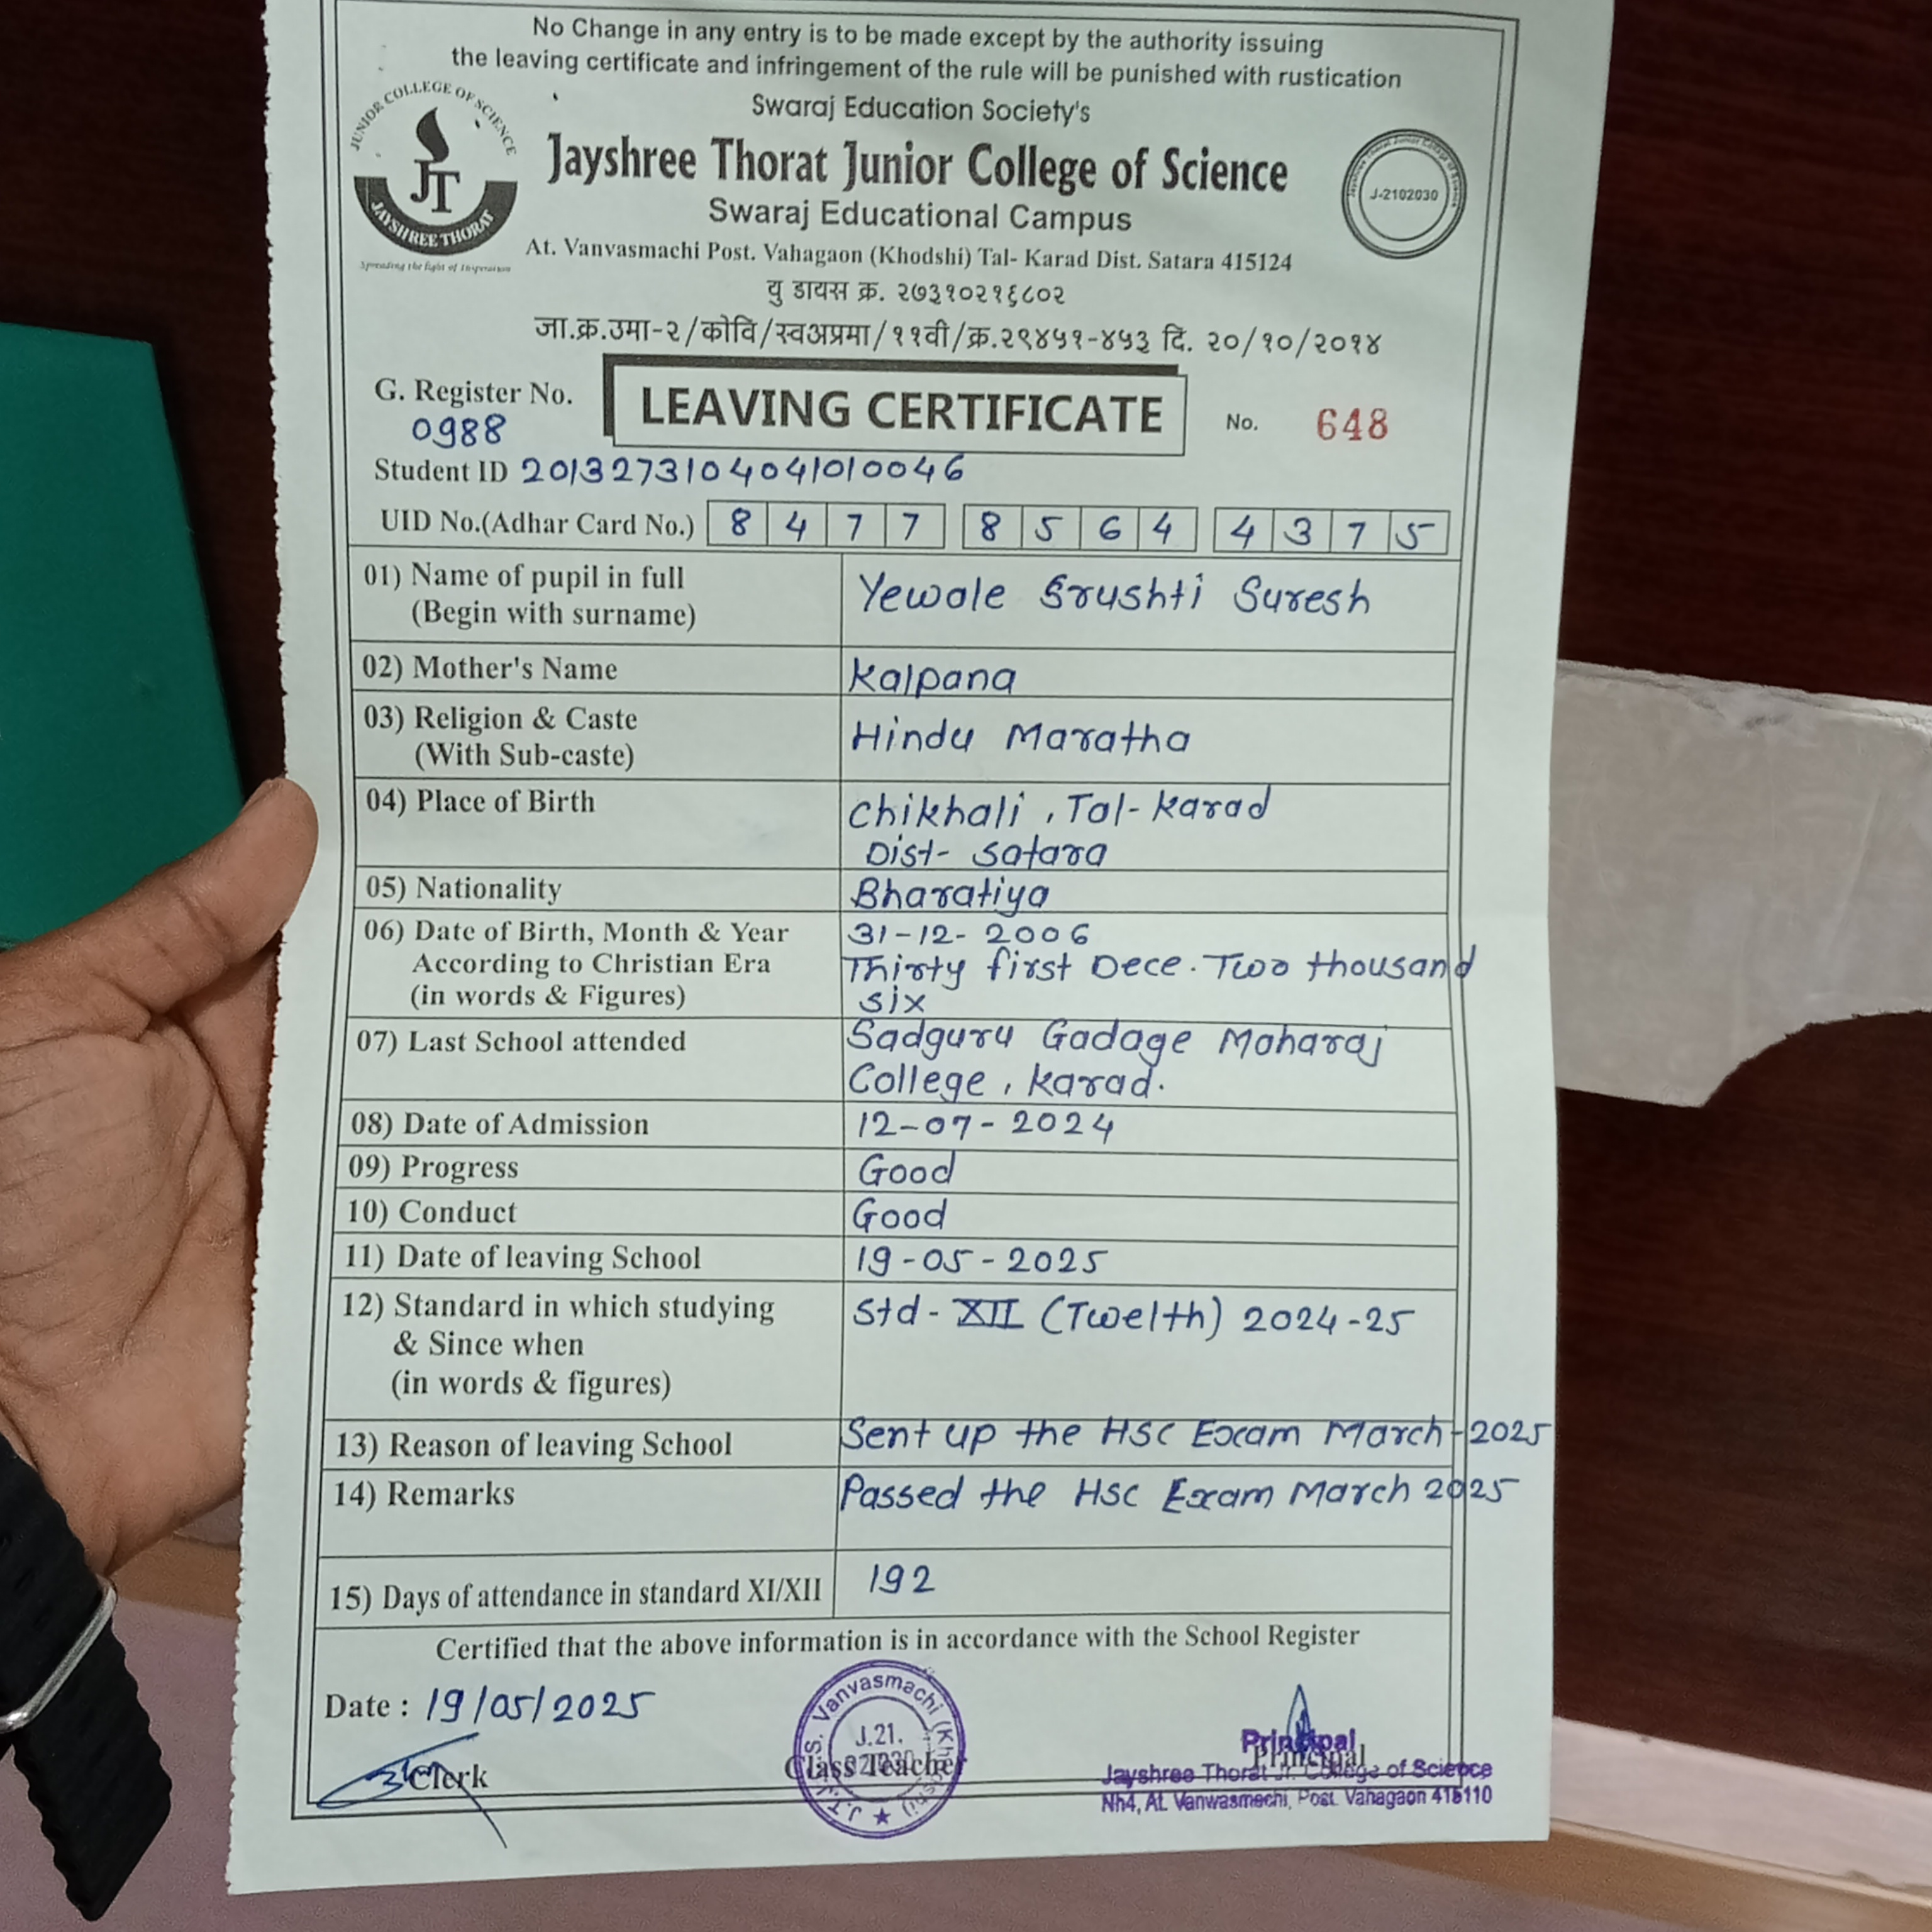 No Change in any entry is to be made except by the authority issuing
the leaving certificate and infringement of the rule will be punished with rustication
Swaraj Education Society's
JUNIOR COLLEGE OF SCIENCE
JT
JAYSHREE THORAT
Spreading the light of Inspiration
Jayshree Thorat Junior College of Science
Jayshree Thorat Junior College of Science
J-2102030
Swaraj Educational Campus
At. Vanvasmachi Post. Vahagaon (Khodshi) Tal- Karad Dist. Satara 415124
यु डायस क्र. २७३१०२१६८०२
जा.क्र.उमा-२/कोवि/स्वअप्रमा/११वी/क्र.२९४५१-४५३ दि. २०/१०/२०१४
G. Register No.
0988
LEAVING CERTIFICATE
No. 648
Student ID 2013273104041010046
UID No.(Adhar Card No.) 8 4 7 7 8 5 6 4 4 3 7 5
01) Name of pupil in full
(Begin with surname)
Yewale Srushti Suresh
02) Mother's Name
Kalpana
03) Religion & Caste
(With Sub-caste)
Hindu Maratha
04) Place of Birth
Chikhali, Tal-karad
Dist- Satara
05) Nationality
Bharatiya
06) Date of Birth, Month & Year
According to Christian Era
(in words & Figures)
31-12-2006
Thirty first Dece. Two thousand
six
07) Last School attended
Sadguru Gadage Maharaj
College, karad.
08) Date of Admission
12-07-2024
09) Progress
Good
10) Conduct
Good
11) Date of leaving School
19-05-2025
12) Standard in which studying
& Since when
(in words & figures)
Std - XII (Twelth) 2024-25
13) Reason of leaving School
Sent up the HSC Exam March-2025
14) Remarks
Passed the HSC Exam March 2025
15) Days of attendance in standard XI/XII
192
Certified that the above information is in accordance with the School Register
Date : 19/05/2025
Clerk
Vanvasmachi
J.21.
Class Teacher
Principal
Principal
Jayshree Thorat Jr. College of Science
Nh4, At. Vanwasmachi, Post. Vahagaon 415110